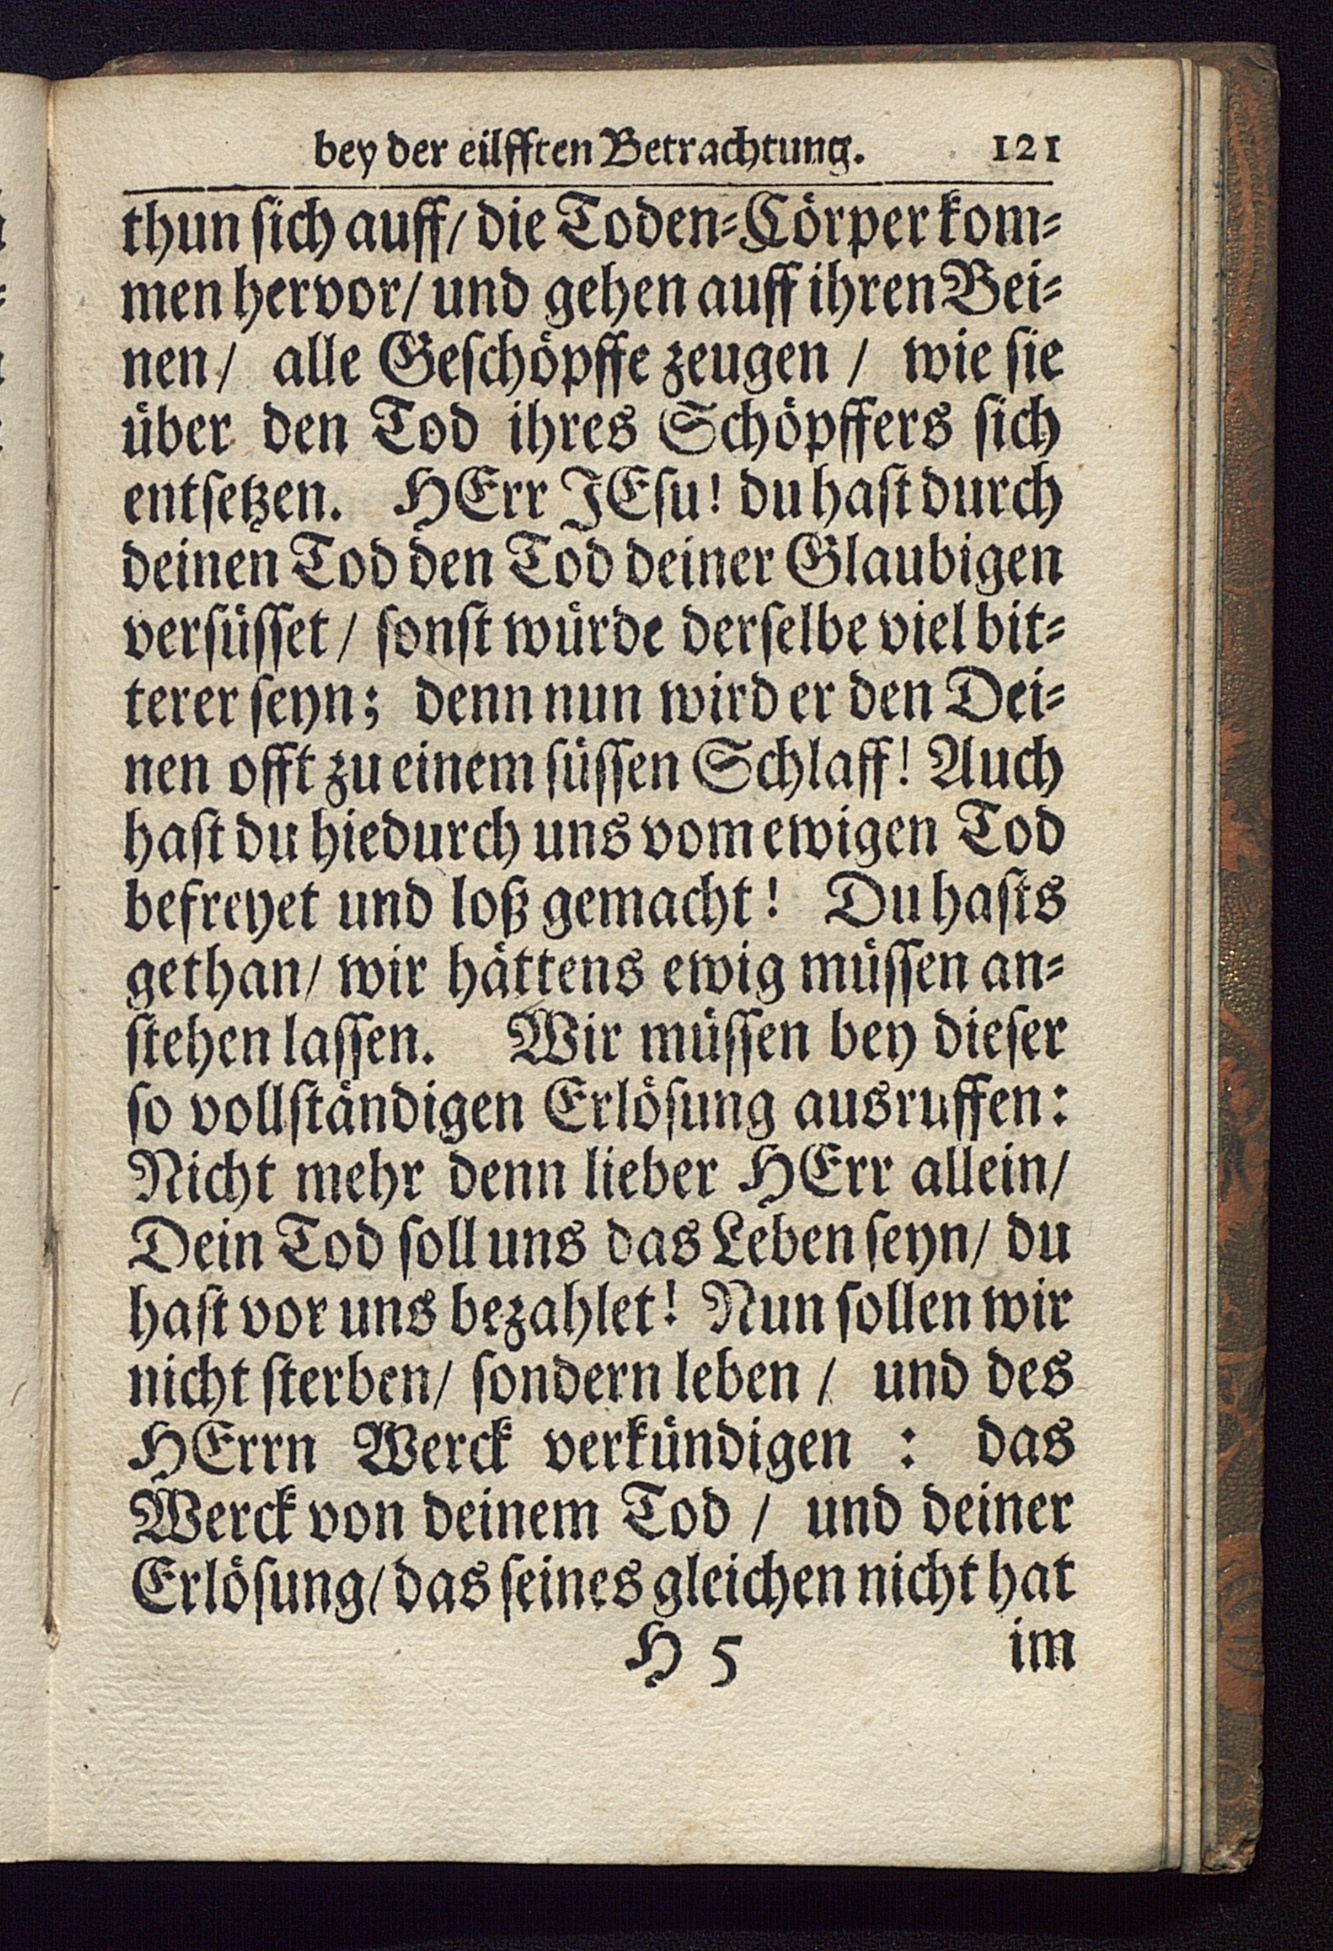 bey der eilfften Betrachtung. 121
thun ſich auff/ die Toden-Cörper kom-
men hervor/ und gehen auff ihren Bei-
nen/ alle Geſchöpffe zeugen / wie ſie
über den Tod ihres Schöpffers ſich
entſetzen. HErr JEſu! du haſt durch
deinen Tod den Tod deiner Glaubigen
verſüſſet / ſonſt würde derſelbe viel bit-
terer ſeyn; denn nun wird er den Dei-
nen offt zu einem ſüſſen Schlaff! Auch
haſt du hiedurch uns vom ewigen Tod
befreyet und loß gemacht! Du haſts
gethan/ wir hättens ewig müſſen an-
ſtehen laſſen. Wir müſſen bey dieſer
ſo vollſtändigen Erlöſung ausruffen:
Nicht mehr denn lieber HErr allein/
Dein Tod ſoll uns das Leben ſeyn/ du
haſt vor uns bezahlet! Nun ſollen wir
nicht ſterben/ ſondern leben / und des
HErrn Werck verkündigen : das
Werck von deinem Tod / und deiner
Erlöſung/ das ſeines gleichen nicht hat
H 5 im